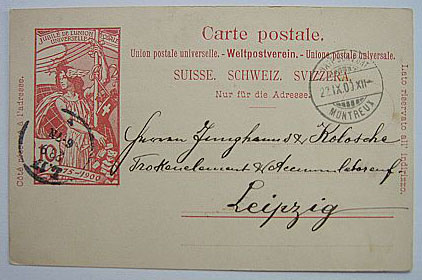 JUBILÉ DE L'UNION
UNIVERSELLE
75-1900
Carte postale.
Union postale universelle. - Weltpostverein. - Unione postale universale.
SUISSE. SCHWEIZ. SVIZZERA.
Nur für die Adresse.
Côté réservé à l'adresse.
Lato riservato all' indirizzo.
MONTREUX
Herren Junghanns & Kolosche
Trockenelement & Accumulatorenf
Leipzig